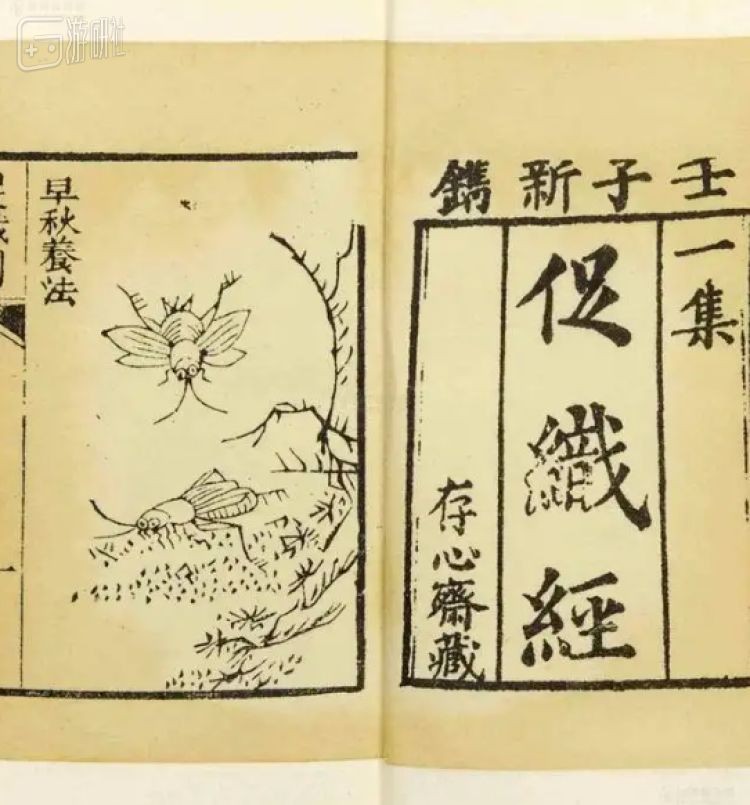 游研社
壬子新鐫
一集
促織經
存心齋藏
早秋養法
一